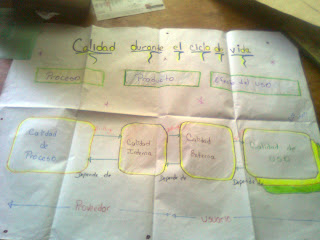 Calidad durante el ciclo de vida
Proceso Producto del uso
Calidad de Proceso
Calidad Interna
Calidad Externa
Calidad de uso
Depende de Depende de Depende de
usuario